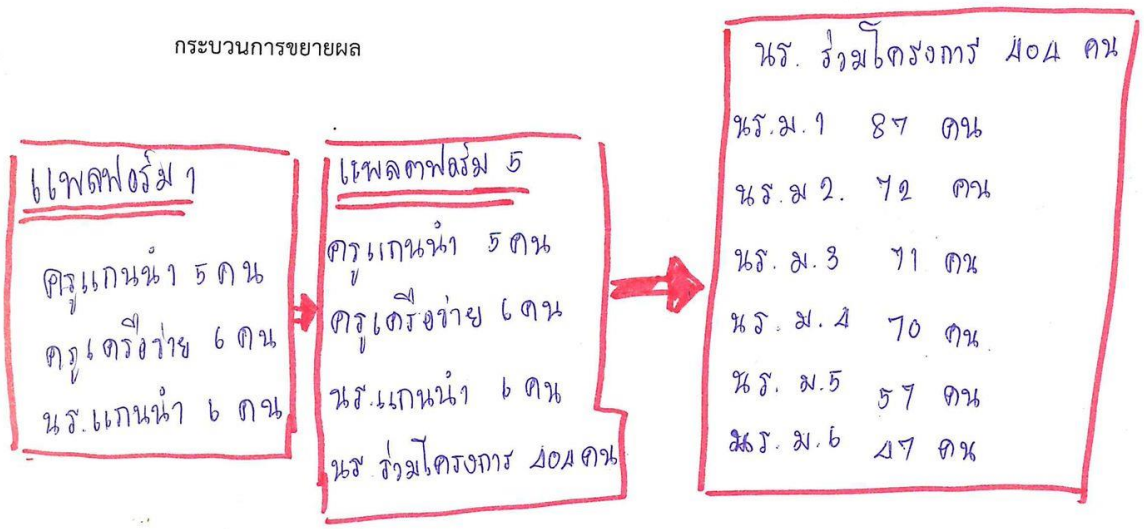 กระบวนการขยายผล
แพลฟอร์ม 1
ครูแกนนำ 5 คน
ครูเครือข่าย 6 คน
นร.แกนนำ 6 คน
แพลตฟอร์ม 5
ครูแกนนำ 5 คน
ครูเครือข่าย 6 คน
นร.แกนนำ 6 คน
นร. ร่วมโครงการ 404 คน
นร. ร่วมโครงการ 404 คน
นร.ม.1 87 คน
นร.ม 2. 72 คน
นร.ม.3 71 คน
นร.ม.4 70 คน
นร.ม.5 57 คน
นร.ม.6 47 คน